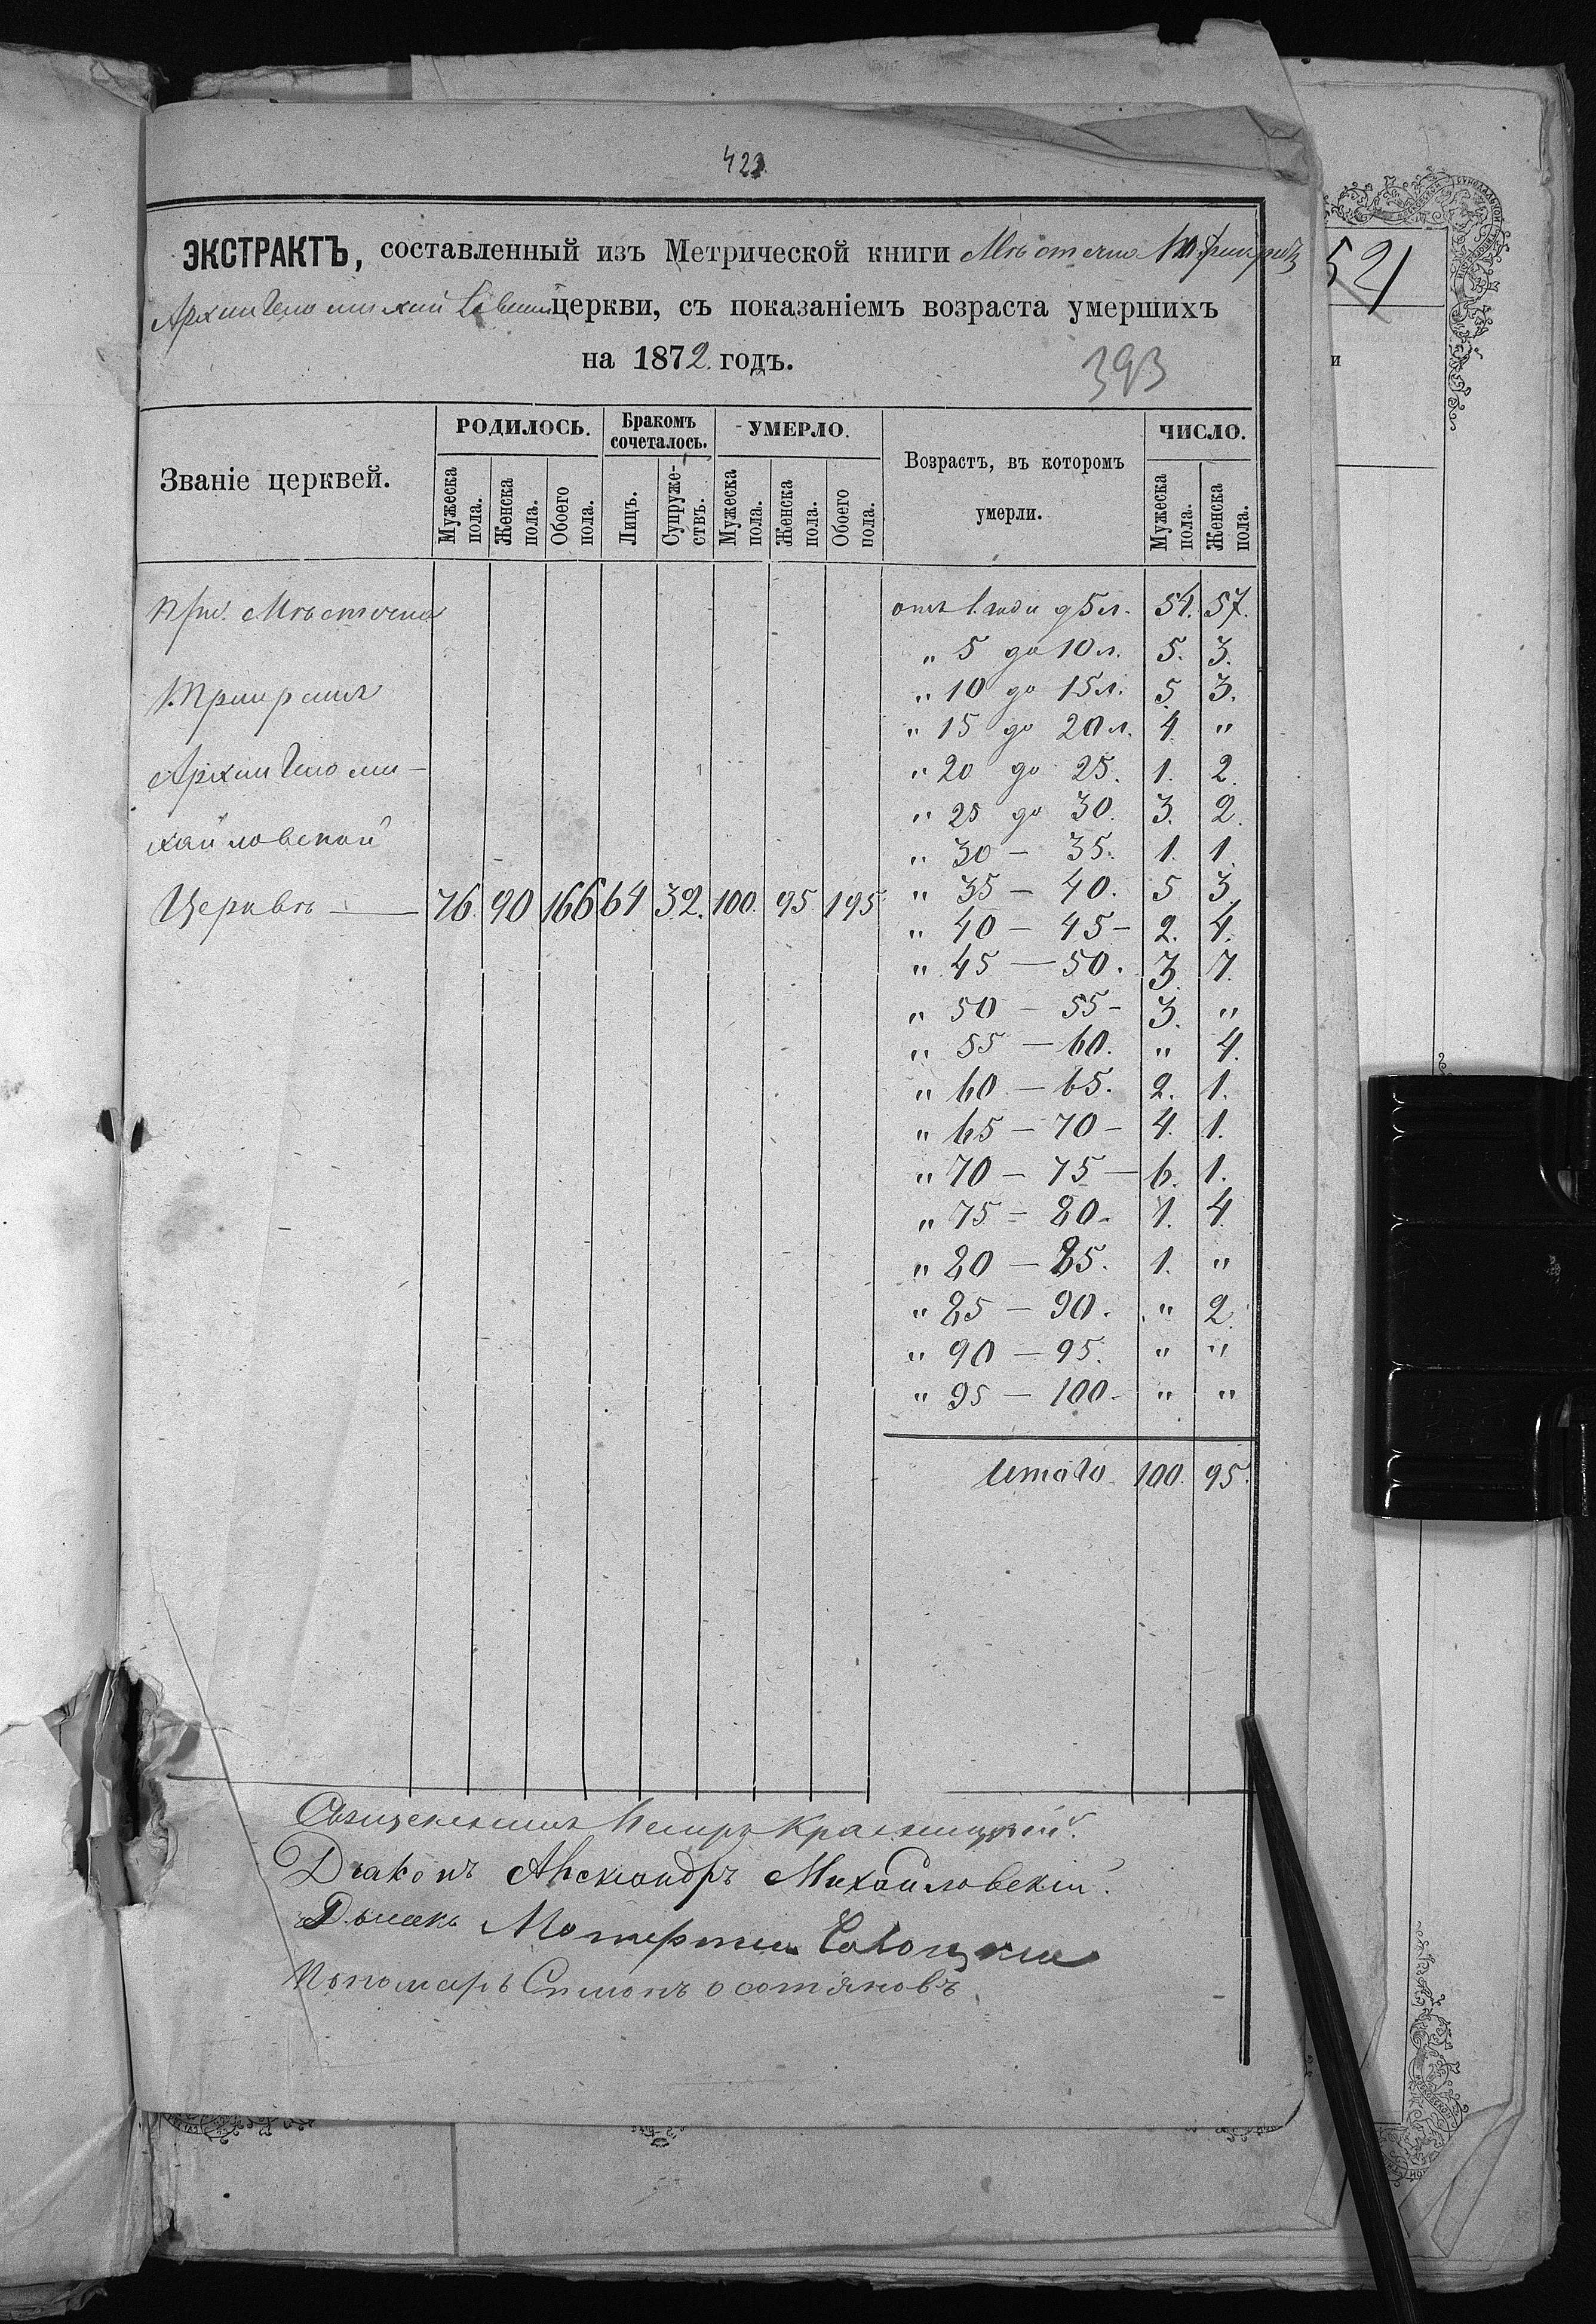 423
ЭКСТРАКТЪ, составленный изъ Метрической книги Мѣстечка
церкви, съ показаніемъ возраста умершихъ
на 1872. годъ.
393
521
и
Званіе церквей.
РОДИЛОСЬ.
Бракомъ сочеталось.
УМЕРЛО.
Возрастъ, въ которомъ умерли.
ЧИСЛО.
Мужеска пола.
Женска пола.
Обоего пола.
Лицъ.
Супруже-ствъ.
Мужеска пола.
Женска пола.
Обоего пола.
Мужеска пола.
Женска пола.
При Мѣстечка
Архистратигоми-
хайловской
Церквѣ — 76. 90 166 64 32. 100. 95 195
отъ 1. года до 5 л. 54. 57.
„ 5 до 10 л. 5. 3.
„ 10 до 15 л. 5 3.
„ 15 до 20 л. 4. „
„ 20 до 25. 1. 2.
„ 25 до 30. 3. 2.
„ 30 — 35. 1. 1.
„ 35 — 40. 5 3.
„ 40 — 45 — 2. 4.
„ 45 — 50. 3. 7.
„ 50 — 55 — 3. „
„ 55 — 60. „ 4.
„ 60 — 65. 2. 1.
„ 65 — 70 — 4. 1.
„ 70 — 75 — 6. 1.
„ 75 — 80. 1. 4.
„ 80 — 85. 1. „
„ 85 — 90. „ 2.
„ 90 — 95. „ „
„ 95 — 100 — „ „
Итого 100. 95.
Священникъ Петръ Красницкій.
Діаконъ Александръ Михайловскій.
Дьячекъ
Пономарь Симонъ